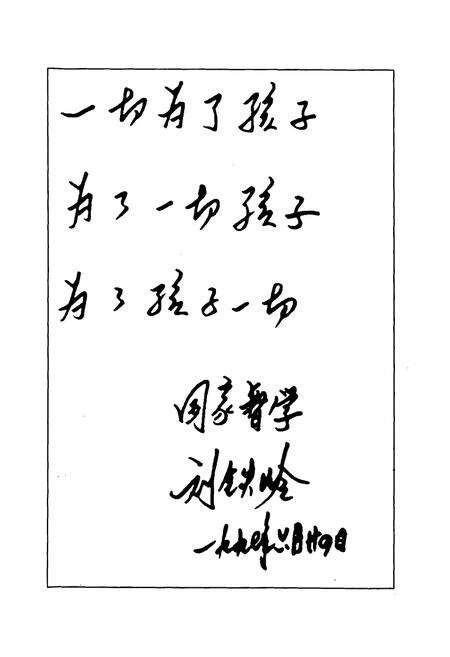 一切为了孩子
为了一切孩子
为了孩子一切
国家督学
刘铁岭
一九九年六月廿九日